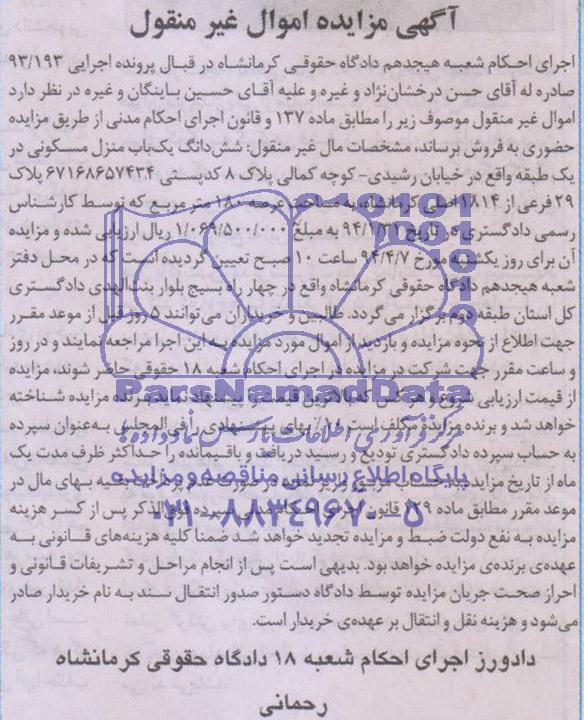 آگهی مزایده اموال غیر منقول
اجرای احکام شعبه هیجدهم دادگاه حقوقی کرمانشاه در قبال پرونده اجرایی ۹۳/۱۹۳
صادره له آقای حسن درخشان‌نژاد و غیره و علیه آقای حسین باینگان و غیره در نظر دارد
اموال غیر منقول موصوف زیر را مطابق ماده ۱۳۷ و قانون اجرای احکام مدنی از طریق مزایده
حضوری به فروش برساند، مشخصات مال غیر منقول: شش‌دانگ یک‌باب منزل مسکونی در
یک طبقه واقع در خیابان رشیدی- کوچه کمالی پلاک ۸ کدپستی ۶۷۱۶۸۶۵۷۴۳۴ پلاک
۲۹ فرعی از ۱۸۱۴ اصلی کرمانشاه، به مساحت عرصه ۱۸۰ متر مربع که توسط کارشناس
رسمی دادگستری در تاریخ ۹۴/۱/۳۱ به مبلغ ۱/۰۶۹/۵۰۰/۰۰۰ ریال ارزیابی شده و مزایده
آن برای روز یکشنبه مورخ ۹۴/۴/۷ ساعت ۱۰ صبح تعیین گردیده است که در محل دفتر
شعبه هیجدهم دادگاه حقوقی کرمانشاه واقع در چهار راه بسیج بلوار بنت‌الهدی دادگستری
کل استان طبقه دوم برگزار می‌گردد. طالبین و خریداران می‌توانند ۵ روز قبل از موعد مقرر
جهت اطلاع از نحوه مزایده و بازدید از اموال مورد مزایده به این اجرا مراجعه نمایند و در روز
و ساعت مقرر جهت شرکت در مزایده در اجرای احکام شعبه ۱۸ حقوقی حاضر شوند، مزایده
از قیمت ارزیابی شروع و هر کس که بالاترین قیمت را پیشنهاد نماید برنده مزایده شناخته
خواهد شد و برنده مزایده مکلف است ۱۰٪ بهای پیشنهادی را فی‌المجلس به‌عنوان سپرده
به حساب سپرده دادگستری تودیع و رسید دریافت و باقیمانده را حداکثر ظرف مدت یک
ماه از تاریخ مزایده به حساب تودیع و واریز نماید در صورت عدم پرداخت بقیه بهای مال در
موعد مقرر مطابق ماده ۱۲۹ قانون اجرای احکام مدنی سپرده فوق‌الذکر پس از کسر هزینه
مزایده به نفع دولت ضبط و مزایده تجدید خواهد شد ضمنا کلیه هزینه‌های قانونی به
عهده‌ی برنده‌ی مزایده خواهد بود. بدیهی است پس از انجام مراحل و تشریفات قانونی و
احراز صحت جریان مزایده توسط دادگاه دستور صدور انتقال سند به نام خریدار صادر
می‌شود و هزینه نقل و انتقال بر عهده‌ی خریدار است.
دادورز اجرای احکام شعبه ۱۸ دادگاه حقوقی کرمانشاه
رحمانی
ParsNamadData
مرکز فرآوری اطلاعات پارس نماد داده‌ها
پایگاه اطلاع رسانی مناقصه و مزایده
۰۲۱-۸۸۳۴۹۶۷۰-۵